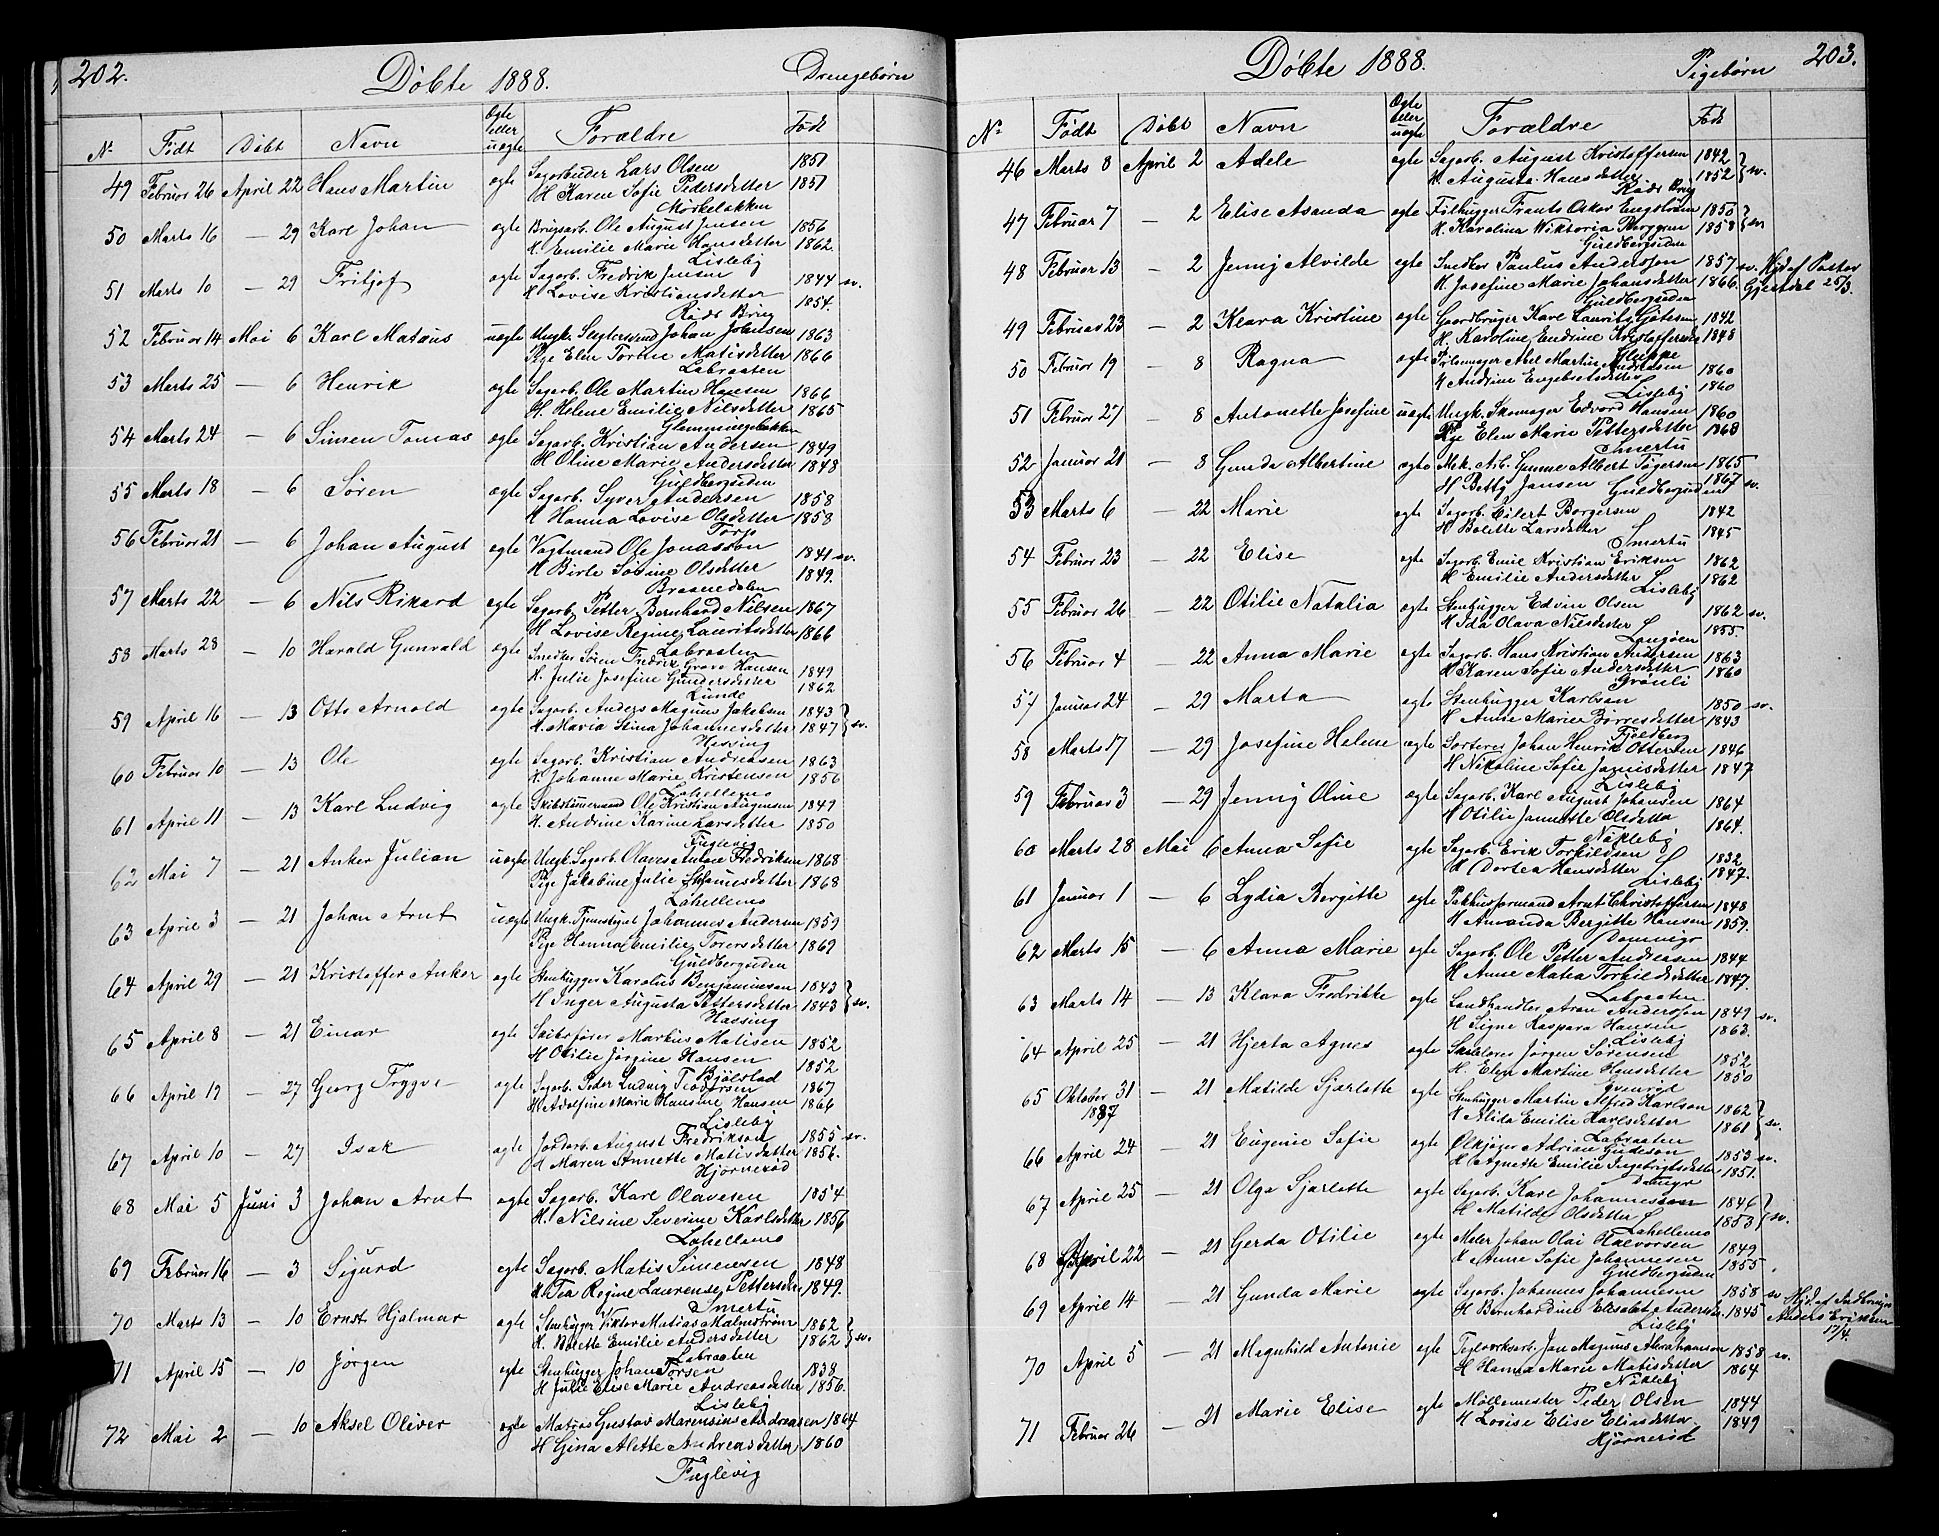 202.
Döbte 1888.
Drengebörn
No Födt Döbt Navn Ægte eller uægte Forældre Födt
49 Februar 26 April 22 Hans Martin ægte Sagarbuder Lars Olsen 1851
H Karen Sofie Pedersdatter 1851
Mörkeløkken
50 Marts 16 — 29 Karl Johan ægte Brugsarb. Ole August Jensen 1856
H. Emilie Marie Hansdatter 1862.
Lisleby
51 Marts 10 — 29 Fritjof ægte Sagarb. Fredrik Jensen 1844 sv.
H Lovise Kristiansdatter 1854.
Röds Brug
52 Februar 14 Mai 6 Karl Mataus uægte Ungk. Johan Johnsen 1863
Pige Elen Torine Matisdatter 1866
Labraaten
53 Marts 25 — 6 Henrik ægte Sagarb. Ole Martin Hansen 1866
H. Helene Emilie Nilsdatter 1865
Glemmingebakken
54 Marts 24 — 6 Simen Tomas ægte Sagarb. Kristian Andersen 1849
H Oline Marie Andersdatter 1848
Guldbergsiden
55 Marts 18 — 6 Sören ægte Sagarb. Syver Andersen 1858
H Hanna Lovise Olsdatter 1858
Torp
56 Februar 21 — 6 Johan August ægte Vagtmand Ole Jonasson 1841 sv.
H Birte Sörine Olsdatter 1849.
Braanedalen
57 Marts 22 — 6 Nils Rikard ægte Sagarb. Petter Bernhard Nilsen 1867
H Lovise Regine Lauritsdatter 1866
Labraaten
58 Marts 28 — 10 Harald Gunvald ægte Snedker Sören Fredrik Grove Hansen 1849
H. Julie Josefine Gundersdatter 1862
Lunde
59 April 16 — 13 Otto Arnold ægte Sagarb. Anders Magnus Jakobsen 1843
H. Maria Stina Johannesdatter 1847 } sv.
Hassing
60 Februar 10 — 13 Ole ægte Sagarb. Kristian Andreasen 1863
H. Johanne Marie Kristensen 1856
Lahellemo
61 April 11 — 13 Karl Ludvig ægte Skibstömmermand Ole Kristian Augensen 1849
H. Andrine Karine Larsdatter 1850
Fuglevig
62 Mai 7 — 21 Anker Julian uægte Ungk. Sagarb. Olaves Antore Fredriksen 1868
Pige Jakobine Julie Johannesdatter 1868
Lahellemo
63 April 3 — 21 Johan Arnt uægte Ungk. Johannes Andersen 1859
Pige Hanna Emilie Torersdatter 1869
Guldbergsiden
64 April 29 — 21 Kristoffer Anker ægte Stenhugger Karolius Benjaminsen 1843
H Inger Augusta Pettersdatter 1843 } sv.
Hassing
65 April 8 — 21 Einar ægte Skibsförer Markus Matisen 1852
H Otilie Jörgine Hansen 1852
Bjölstad
66 April 19 — 27 Georg Trygve ægte Sagarb. Peder Ludvig Teodorsen 1867
H Adolfine Marie Hansine Hansen 1866
Lisleby
67 April 10 — 27 Isak ægte Jordarb. August Fredrikson 1855 sv.
H Maren Annette Matisdatter 1856.
Hjörneröd
68 Mai 5 Juni 3 Johan Arnt ægte Sagarb. Karl Olavesen 1854
H. Nilsine Severine Karlsdatter 1856
Lahellemo
69 Februar 16 — 3 Sigurd ægte Sagarb. Matis Simensen 1848
H Tea Regine Laurense Pettersdtr 1849.
Smertu
70 Marts 13 — 10 Ernst Hjalmar ægte Stenhugger Viktor Matias Malmström 1862
H. Bolette Emilie Andersdatter 1862 } sv.
Labraaten
71 April 15 — 10 Jörgen ægte Stenhugger Johan Torsen 1838
H Julie Elise Marie Andreasdatter 1856.
Lisleby
72 Mai 2 — 10 Aksel Oliver ægte Matros Gustav Marensius Andreasen 1864
H Gina Alette Andreasdatter 1860
Fuglevig
Döbte 1888.
Pigebörn
203.
No Födt Döbt Navn Ægte eller uægte Forældre Födt
46 Marts 8 April 2 Adele ægte Sagarb. August Kristoffersen 1842
H. Augusta Hansdatter 1852 } sv.
Röds Brug
47 Februar 7 — 2 Elise Asanda ægte Filhugger Frants Oskar Engström 1850
H. Karolina Wiktoria Berggren 1858 } sv
Guldbergsiden
48 Februar 13 — 2 Jenny Alvilde ægte Snedker Paulus Andersson 1857 sv. Hjd af Pastor
H. Josefine Marie Johansdatter 1866. Gjerdal 25/3.
Guldbergsiden
49 Februar 23 — 2 Klara Kristine ægte Gaardbruger Karl Laurits Götesen 1842
H. Karoline Endrine Kristoffersen 1848
Kluppe
50 Februar 19 — 8 Ragna ægte Abel Martin Andreasen 1860
H Andrine Engebretsdatter 1860
Lisleby
51 Februar 27 — 8 Antonette Josefine uægte Ungk. Skomager Edvard Hansen 1860
Pige Elen Marie Pettersdatter 1868
Smertu
52 Januar 21 — 8 Gunda Albertine ægte Mek. Arb. Gunne Albert Tögersen 1865
H Betty Jansen Guldbergsiden 1867 sv.
53 Marts 6 — 22 Marie ægte Sagarb. Eilert Borgersen 1842
H Bolette Larsdatter 1845
Smertu
54 Februar 23 — 22 Elise ægte Sagarb. Emil Kristian Eriksen 1862
H Emilie Andersdatter 1862
Lisleby
55 Februar 26 — 22 Otilie Natalia ægte Stenhugger Edvin Olsen 1862 sv.
H Ida Olava Nilsdatter 1855.
Langöen
56 Februar 4 — 22 Anna Marie ægte Sagarb. Hans Kristian Andersen 1863
H Karen Sofie Andersdatter 1860
Grönli
57 Januar 24 — 29 Marta ægte Stenhugger Karlson 1850 sv.
H Anne Marie Börresdatter 1843
Fjeldberg
58 Marts 17 — 29 Josefine Helene ægte Sorterer Johan Henrik Ottersen 1846
H Nikoline Sofie Jonnisdatter 1847
Lisleby
59 Februar 3 — 29 Jenny Oline ægte Sagarb. Karl August Johansen 1864
H Otilie Jannette Olsdatter 1864.
Nökleby
60 Marts 28 Mai 6 Anna Sofie ægte Sagarb. Erik Torkildsen 1832
H Dortea Hansdatter 1847.
Lisleby
61 Januar 1 — 6 Lydia Bergitte ægte Pakhusformand Arnt Christoffersen 1848
H Amanda Bergitte Hansen 1859.
62 Marts 15 — 6 Anna Marie ægte Sagarb. Ole Petter Andreasen 1844
H Anne Matea Torkildsdatter 1847.
Labraaten
63 Marts 14 — 13 Klara Fredrikke ægte Landhandler Aron Andersson 1849 sv.
H Signe Kaspara Hansen 1863.
Lisleby
64 April 25 — 21 Hjerta Agnes ægte Jörgen Sörensen 1852
H. Elen Martine Hansdatter 1850
Evenröd
65 Oktober 31 1887 — 21 Matilde Sjarlotte ægte Stenhugger Martin Alfred Karlson 1862
H Alida Emilie Karlsdatter 1861 } sv.
Labraaten
66 April 24 — 21 Eugenie Sofie ægte Ölkjører Adrian Gudeson 1853 sv.
H Agnette Emilie Ingebrigtsdatter 1851.
67 April 25 — 21 Olga Sjarlotte ægte Sagarb. Karl Johannesson 1846
H Matilde Olsdatter 1853 } sv.
Lahellemo
68 April 22 — 21 Gerda Otilie ægte Maler Johan Olai Halvorsen 1849
H Anne Sofie Johannesen 1855
Guldbergsiden
69 April 14 — 21 Gunda Marie ægte Sagarb. Johannes Johannesen 1858 sv Hjd. af Indbruger
H Bernhardine Elisabet Andersdtr 1845 Anders Eriksen
Lisleby 17/4.
70 April 5 — 21 Magnhild Antonie ægte Teglværksarb. Jan Magnus Abrahamson 1858 sv.
H Hanna Marie Matisdatter 1864
Nökleby
71 Februar 26 — 21 Marie Elise ægte Möllemester Peder Olsen 1844
H Lovise Elise Eliasdatter 1849
Hjörneröd